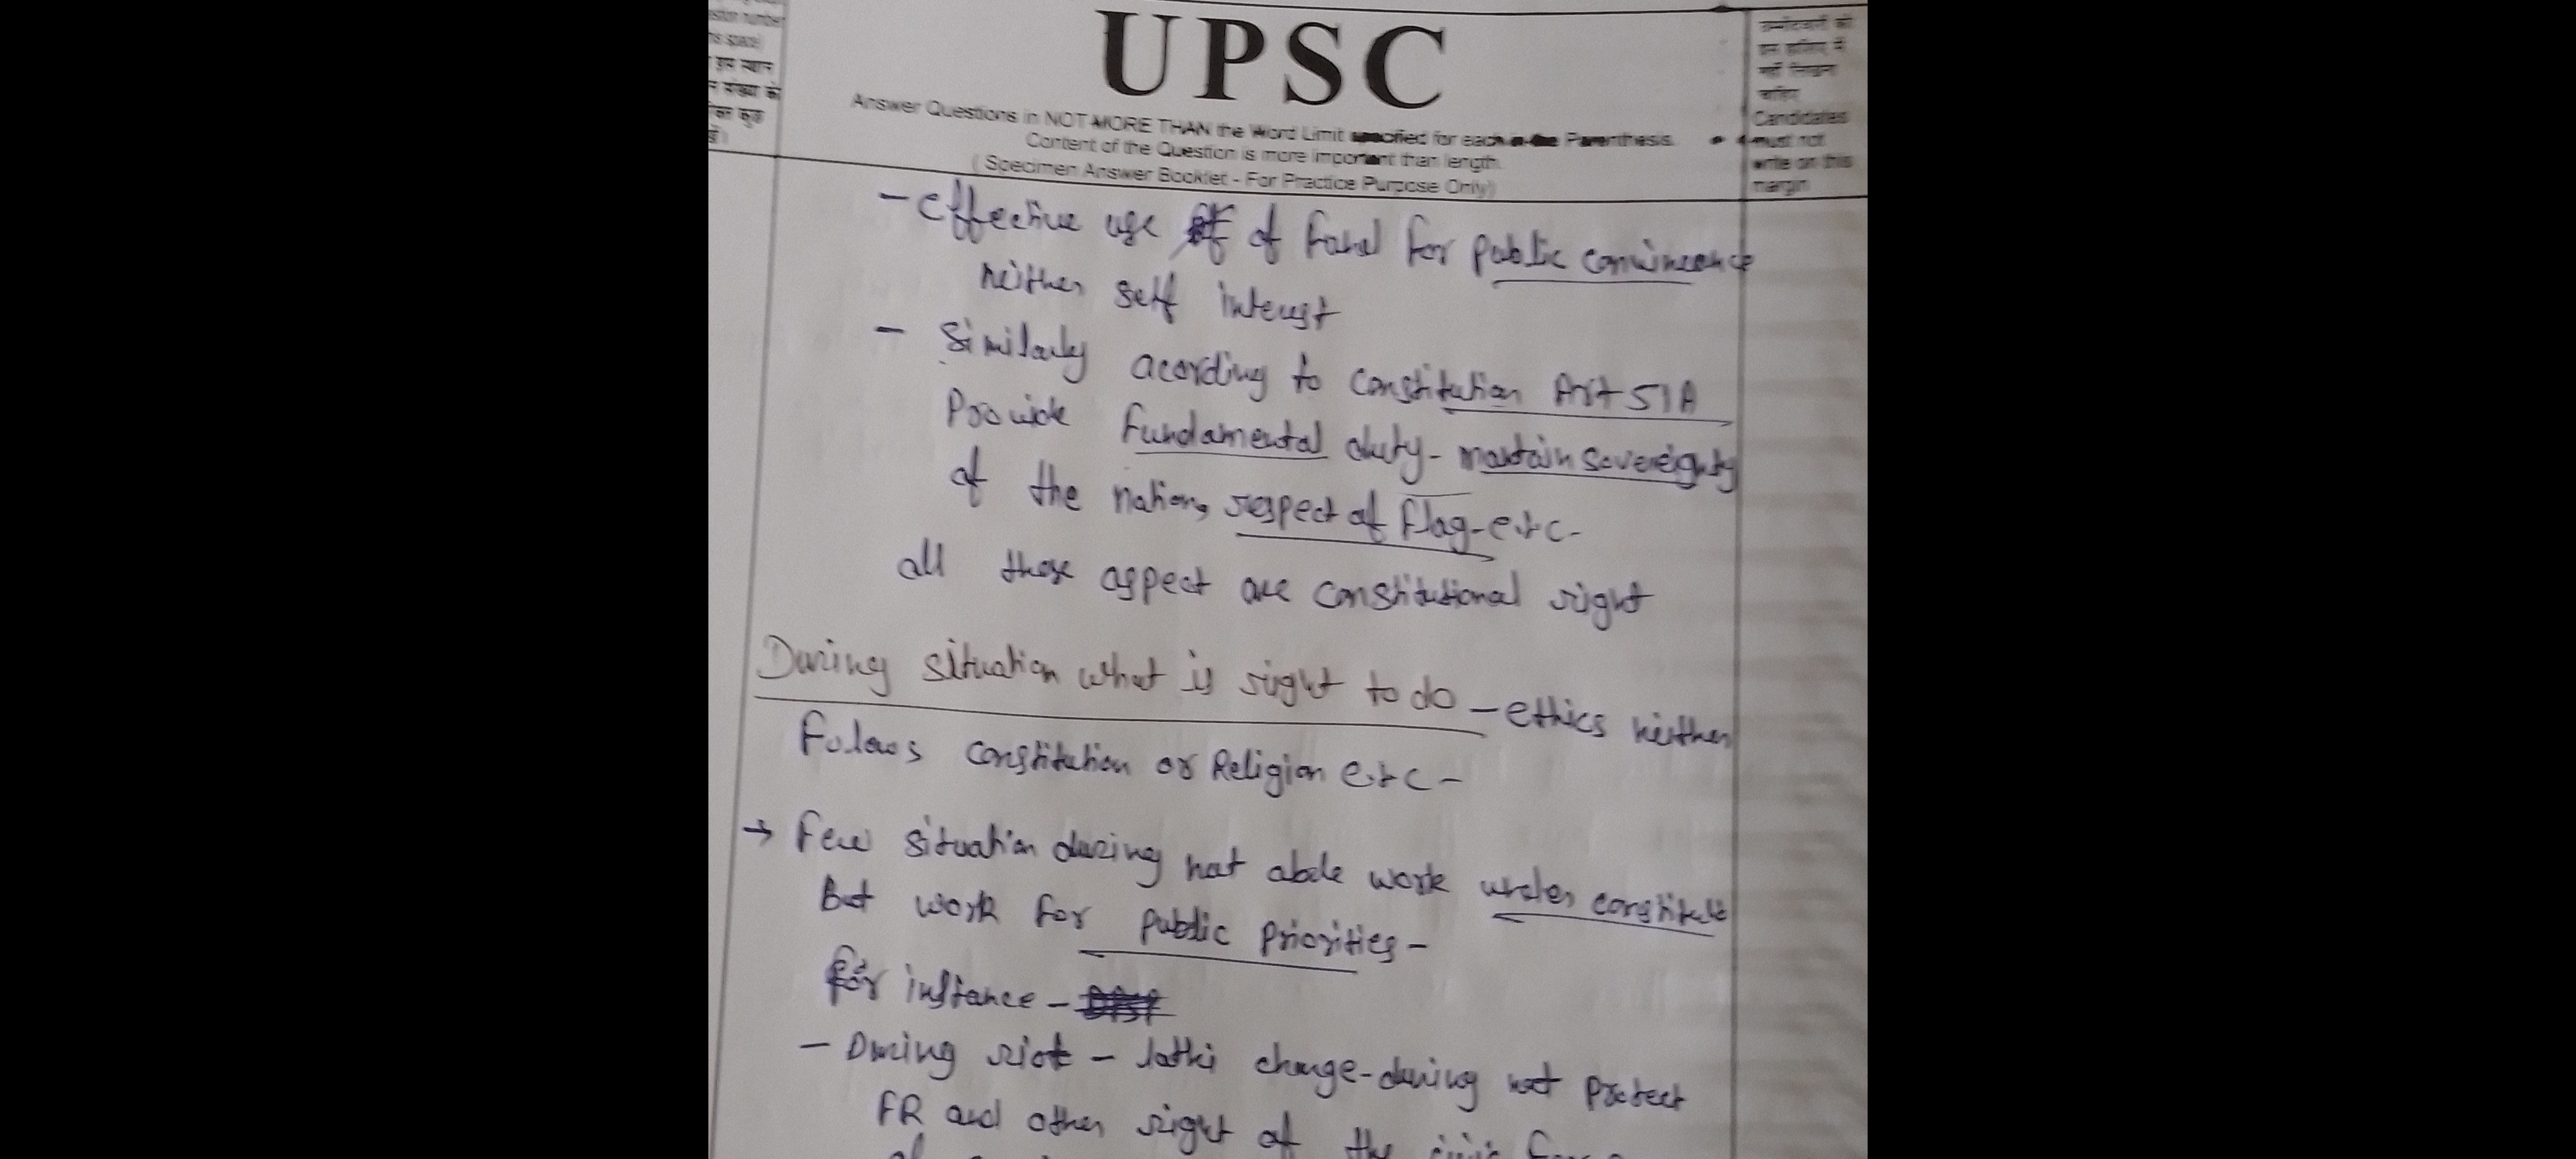 estion number
is space)
इस स्थान
न संख्या के
UPSC
Answer Questions in NOT MORE THAN the Word Limit specified for each in the Parenthesis.
Content of the Question is more important than length.
( Specimen Answer Booklet - For Practice Purpose Only)
उम्मीदवारों को
इस हाशिए में
नहीं लिखना
चाहिए
Candidates
must not
write on this
margin
- Effective use of fund for public
neither self interest
- Similarly acording to constitution Art 51A
Provide fundamental duty - maintain sovereignty
of the nation, respect of flag - etc -
all these aspect are constitutional right
During situation what is right to do - ethics neither
Follows constitution or Religion etc -
→ Few situation during not able work under
But work for public priorities -
for instance -
- During riot - lathi charge - during not protect
FR and other right of the